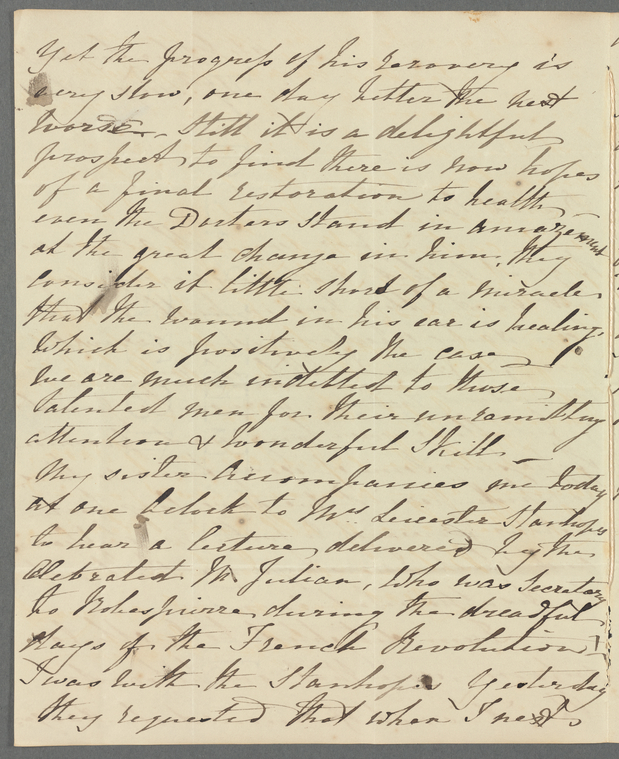 Yet the progress of his recovery is
very slow, one day better the next
worse. Still it is a delightful
prospect to find there is now hopes
of a final restoration to health
even the Doctors stand in amazement
at the great change in him, they
consider it little short of a miracle
that the wound in his ear is healing,
which is positively the case
we are much indebted to those
talented men for their unremitting
attention & wonderful skill
My sister accompanies me today
at one Oclock to Mrs Leicester Stanhopes
to hear a lecture, delivered by the
Celebrated M. Julian, who was Secretary
to Robespierre during the dreadful
days of the French Revolution!
I was with the Stanhopes Yesterday
they requested that when I next